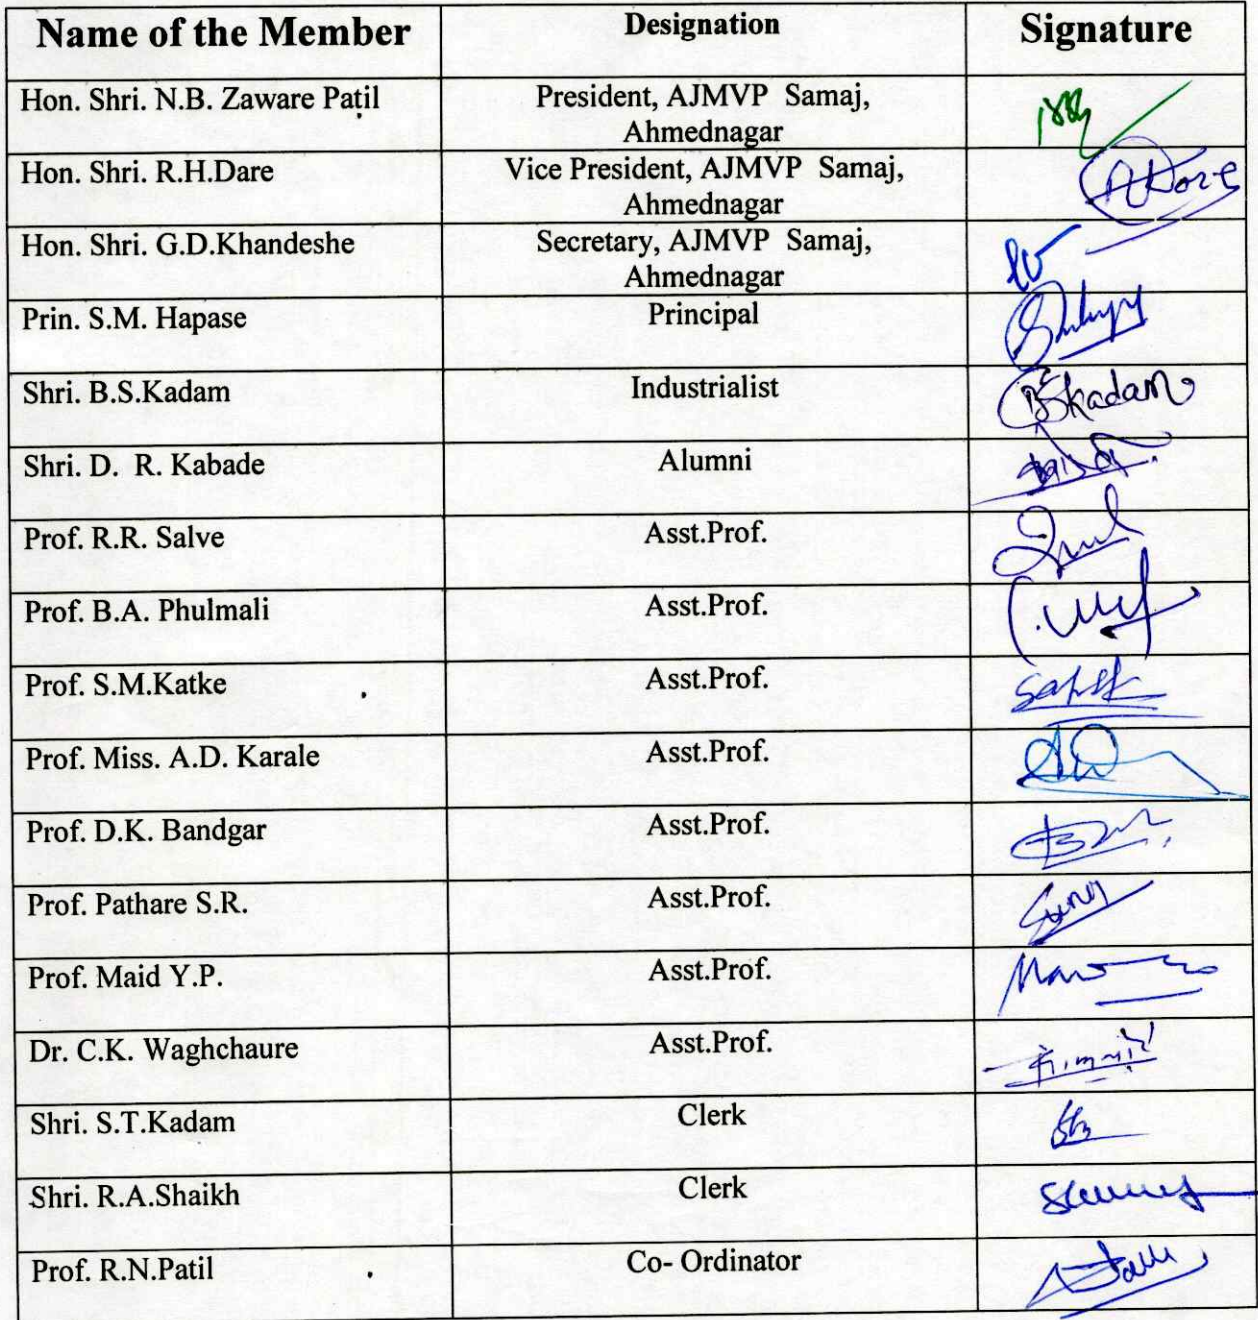 Name of the Member Designation Signature
Hon. Shri. N.B. Zaware Patil President, AJMVP Samaj,
Ahmednagar
Hon. Shri. R.H.Dare Vice President, AJMVP Samaj,
Ahmednagar
Hon. Shri. G.D.Khandeshe Secretary, AJMVP Samaj,
Ahmednagar
Prin. S.M. Hapase Principal
Shri. B.S.Kadam Industrialist BSkadam
Shri. D. R. Kabade Alumni
Prof. R.R. Salve Asst.Prof.
Prof. B.A. Phulmali Asst.Prof.
Prof. S.M.Katke Asst.Prof.
Prof. Miss. A.D. Karale Asst.Prof.
Prof. D.K. Bandgar Asst.Prof.
Prof. Pathare S.R. Asst.Prof.
Prof. Maid Y.P. Asst.Prof.
Dr. C.K. Waghchaure Asst.Prof.
Shri. S.T.Kadam Clerk
Shri. R.A.Shaikh Clerk
Prof. R.N.Patil Co- Ordinator